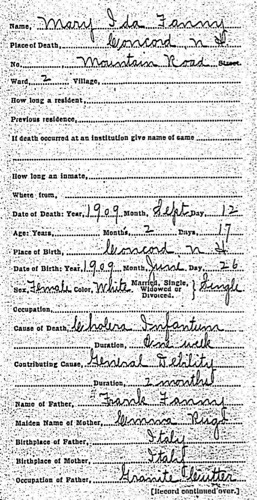 Name, Mary Ida Fanny
Place of Death, Concord N H.
No. Mountain Road Street
Ward, 2 Village,
How long a resident,
Previous residence,
If death occurred at an institution give name of same
How long an inmate,
Where from,
Date of Death: Year, 1909 Month, Sept Day, 12
Age: Years, Months, 2 Days, 17
Place of Birth, Concord N H
Date of Birth: Year, 1909 Month, June Day, 26
Sex, Female Color, White Married, Single, Widowed or Divorced. } Single
Occupation,
Cause of Death, Cholera Infantum
Duration, One week
Contributing Cause, General Debility
Duration, 2 months
Name of Father, Frank Fanny
Maiden Name of Mother, Emma
Birthplace of Father, Italy
Birthplace of Mother, Italy
Occupation of Father, Granite Cutter
[Record continued over.]